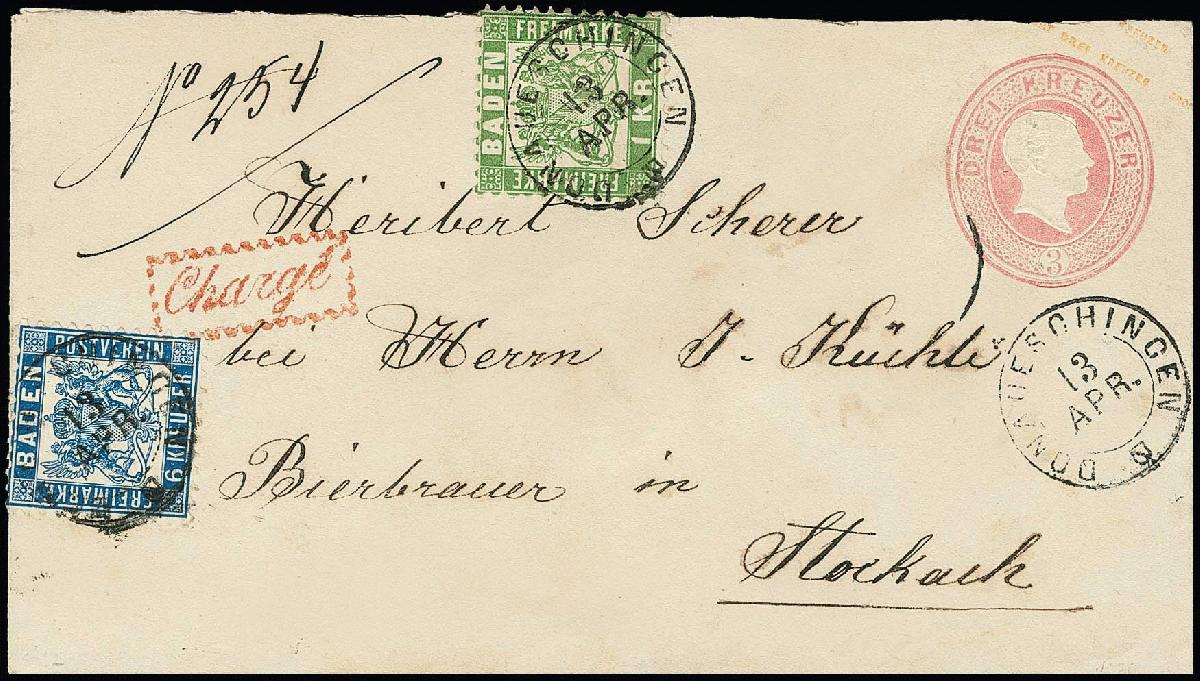 No 254
FREIMARKE
BADEN
1 KR.
FREIMARKE
DONAUESCHINGEN
13
APR.
DREI KREUZER
KREUZER
DREI KREUZER
DREI KREUZER
3
Heribert Scherer
Chargé
bei Herrn J. Küchle
POSTVEREIN
BADEN
6 KREUZER
FREIMARKE
13
APR.
DONAUESCHINGEN
13
APR.
Bierbrauer in
Stockach